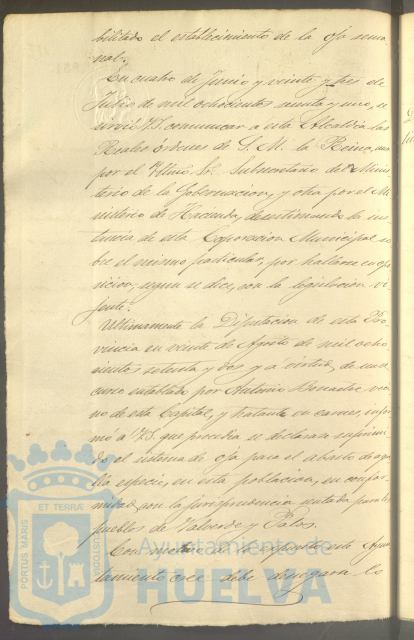 bilitado el establecimiento de la oja sema
nal.
En cuatro de Junio y veinte y tres de
Julio de mil ochocientos y uno, se
sirvió V.S. comunicar a esta Alcaldia las
Reales órdenes de S. M. la Reina, una
por el Yltmo. Sr. Subsecretario del Minis
terio de la Gobernacion, y otra por el Mi
nisterio de Hacienda, desestimando la ins
tancia de esta Corporacion Municipal so
bre el mismo particular, por hallarse en opo
sicion, segun se dice, con la legislacion vi
jente.
Ultimamente la Diputacion de esta Pro
vincia en veinte de Agosto de mil ocho
cientos setenta y dos y a virtud, de
curso entablado por Antonio veci
no de esta Capital, y tratante en carnes, infor
mó a V.S. que procedia se declarara suprimi
do el sistema de oja para el abasto de aque
lla especie, en esta poblacion, en confor
midad con la jurisprudencia sentada para los
pueblos de Valverde y Palos.
Con motivo de lo espuesto este Ayun
tamiento cree debe denegarse lo
PORTUS MARIS ET TERRAE CUSTODIA
Ayuntamiento de
HUELVA